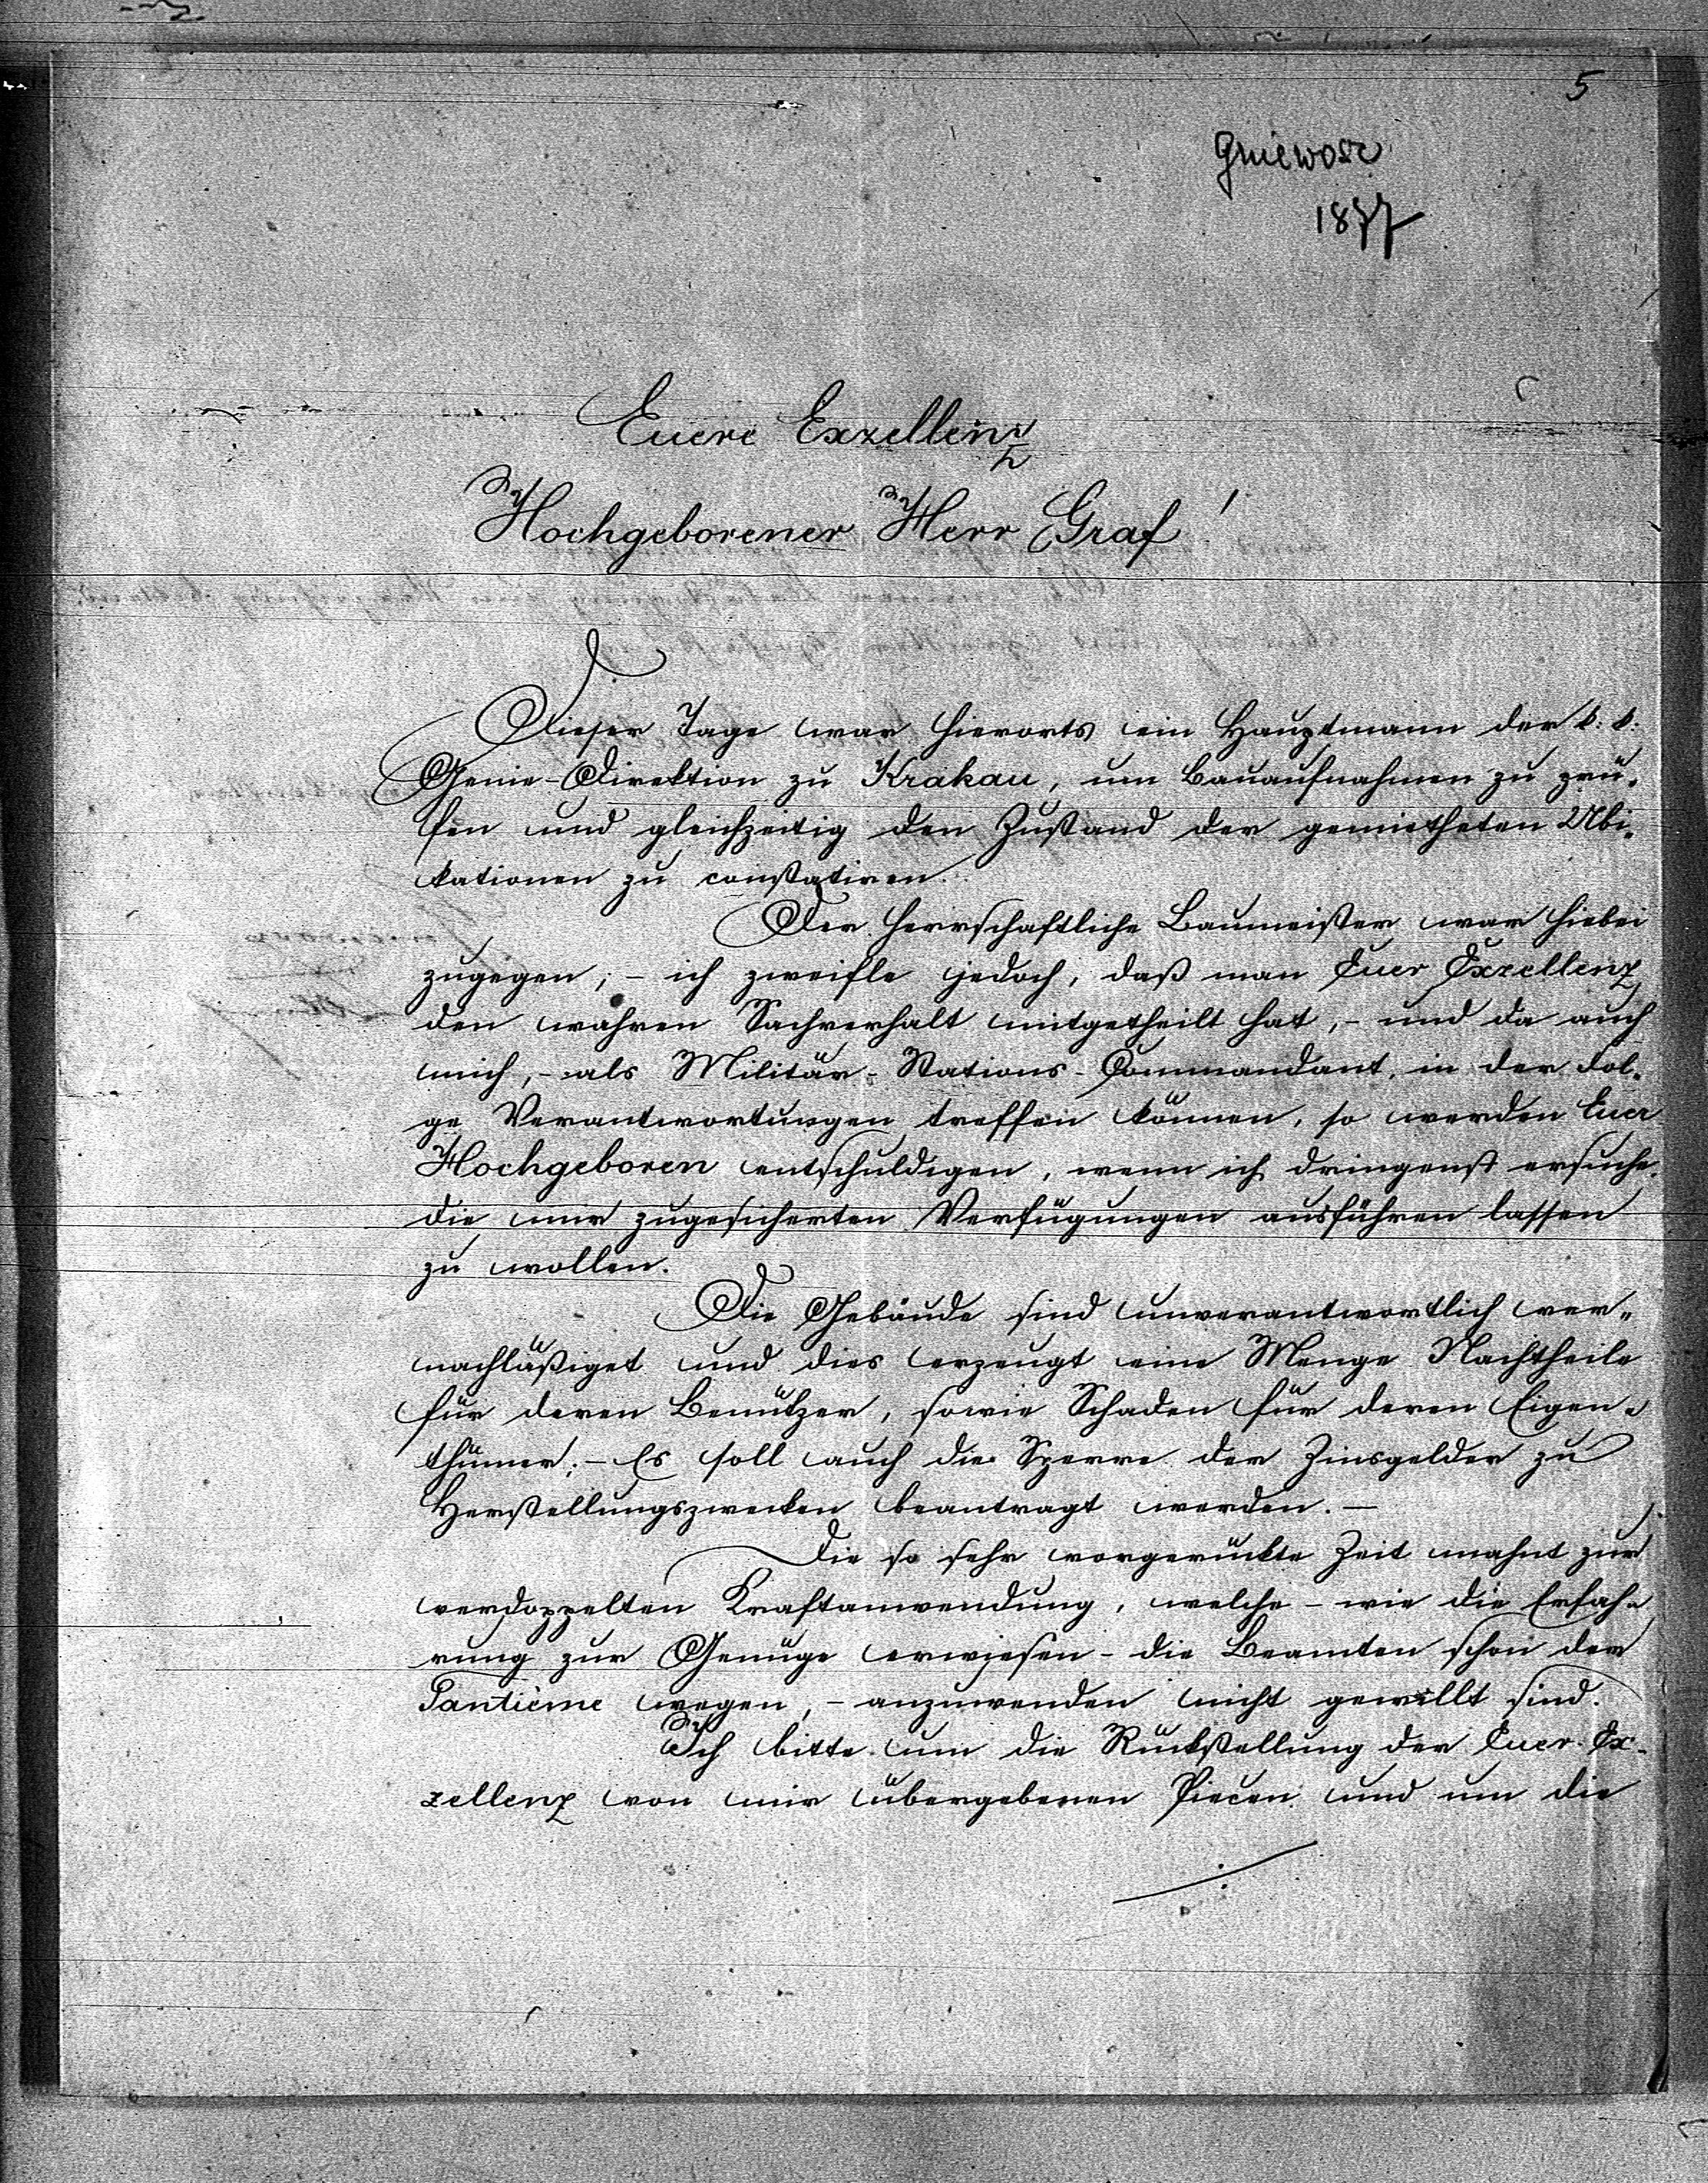 5
Gniewosz
1877
Euere Exzellenz
Hochgeborener Herr Graf!
Dieser Tage war hierorts ein Hauptmann der k: k:
Genie-Direktion zu Krakau, um Bauaufnahmen zu prü-
fen und gleichzeitig den Zustand der gemietheten Ubi-
kationen zu constatiren.
Der herrschaftliche Baumeister war hiebei
zugegen; - ich zweifle jedoch, daß man Euer Exzellenz
den wahren Sachverhalt mitgetheilt hat, - und da auch
mich, - als Militär-Stations-Commandant, in der Fol-
ge Verantwortungen treffen können, so werden Euer
Hochgeboren entschuldigen, wenn ich dringenst ersuche,
die mir zugesicherten Verfügungen ausführen lassen
zu wollen.
Die Gebäude sind unverantwortlich ver-
nachläßiget und dies erzeugt eine Menge Nachtheile
für deren Benützer, sowie Schaden für deren Eigen-
thümer; - Es soll auch die Sperre der Zinsgelder zu
Herstellungszwecken beantragt werden. -
Die so sehr vorgerückte Zeit mahnt zur
verdoppelten Kraftanwendung, welche - wie die Erfah-
rung zur Genüge erwiesen - die Beamten schon der
Tantième wegen, - anzuwenden nicht gewillt sind.
Ich bitte um die Rückstellung der Euer Ex-
zellenz von mir übergebenen Piecen und um die